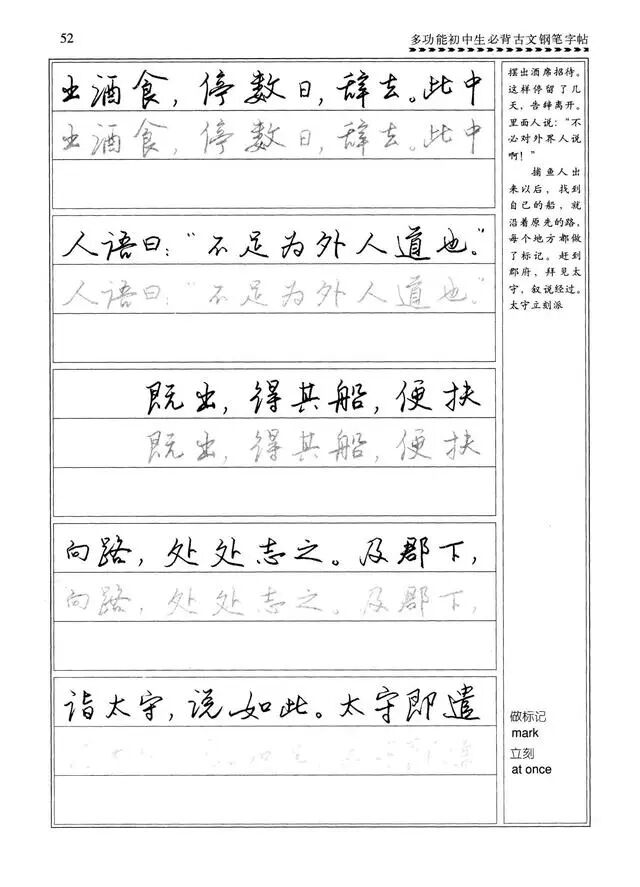 52
多功能初中生必背古文钢笔字帖
出酒食，停数日，辞去。此中
出酒食，停数日，辞去。此中
人语曰：“不足为外人道也。”
人语曰：“不足为外人道也。”
既出，得其船，便扶
既出，得其船，便扶
向路，处处志之。及郡下，
向路，处处志之。及郡下，
诣太守，说如此。太守即遣
摆出酒席招待。
这样停留了几
天，告辞离开。
里面人说：“不
必对外界人说
啊！”
捕鱼人出
来以后，找到
自己的船，就
沿着原先的路，
每个地方都做
了标记。赶到
郡府，拜见太
守，叙说经过。
太守立刻派
做标记
mark
立刻
at once